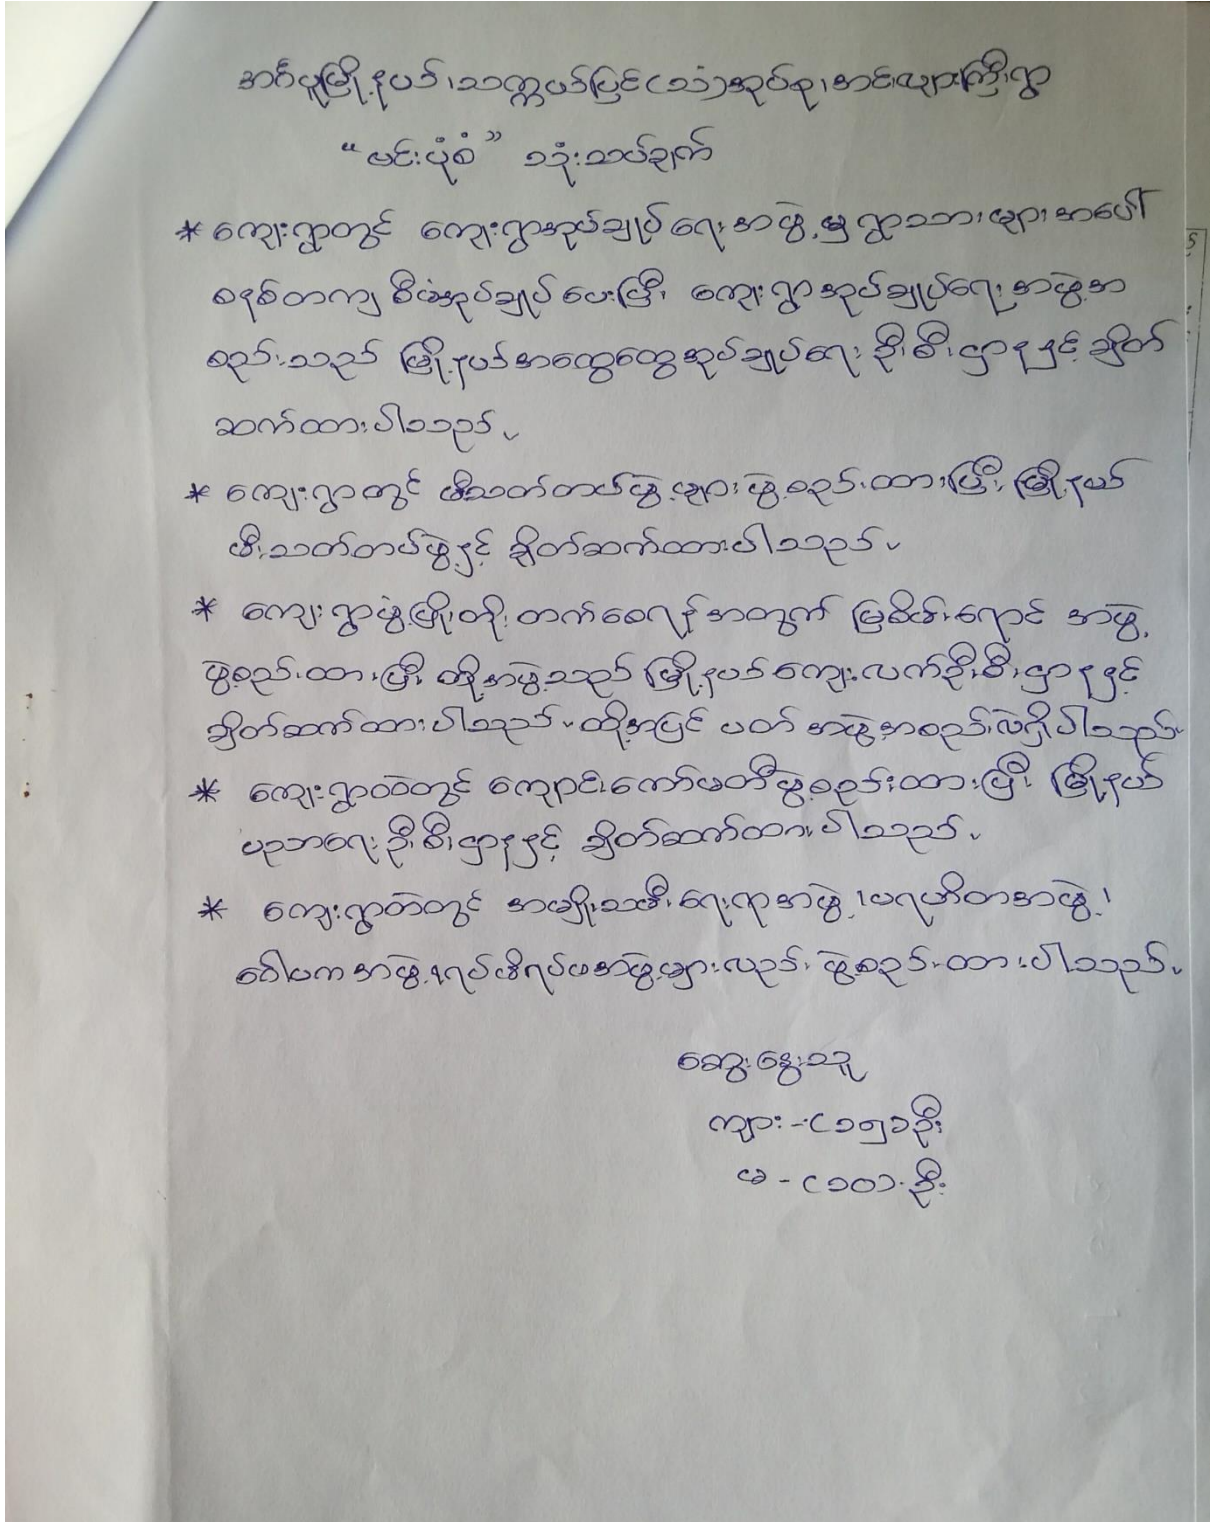 အင်္ဂပူမြို့နယ်၊သက္ကယ်ပြင်(သံ)အုပ်စု၊အင်းလျားကြီးရွာ
"ဗင်းပုံစံ" သုံးသပ်ချက်
* ကျေးရွာတွင် ကျေးရွာအုပ်ချုပ်ရေးအဖွဲ့မှ ရွာသားများအပေါ်
စနစ်တကျ စီမံအုပ်ချုပ်ပေးပြီး ကျေးရွာအုပ်ချုပ်ရေးအဖွဲ့အ
စည်းသည် မြို့နယ်အထွေထွေအုပ်ချုပ်ရေး ဦးစီးဌာနနှင့် ချိတ်
ဆက်ထားပါသည်။
* ကျေးရွာတွင် မီးသတ်တပ်ဖွဲ့များဖွဲ့စည်းထားပြီး မြို့နယ်
မီးသတ်တပ်ဖွဲ့နှင့် ချိတ်ဆက်ထားပါသည်။
* ကျေးရွာဖွံ့ဖြိုးတိုးတက်စေရန်အတွက် မြစိမ်းရောင် အဖွဲ့
ဖွဲ့စည်းထားပြီး ထိုအဖွဲ့သည် မြို့နယ်ကျေးလက်ဦးစီးဌာနနှင့်
ချိတ်ဆက်ထားပါသည်။ ထို့အပြင် ပတ် အဖွဲ့အစည်းလဲရှိပါသည်။
* ကျေးရွာထဲတွင် ကျောင်းကော်မတီဖွဲ့စည်းထားပြီး မြို့နယ်
ပညာရေးဦးစီးဌာနနှင့် ချိတ်ဆက်ထားပါသည်။
* ကျေးရွာထဲတွင် အမျိုးသမီးရေးရာအဖွဲ့၊ပရဟိတအဖွဲ့၊
ဂေါပကအဖွဲ့၊ရပ်မိရပ်ဖအဖွဲ့များလည်း ဖွဲ့စည်းထားပါသည်။
ဆွေးနွေးသူ
ကျား -(၁၅)ဦး
မ - (၁၀)ဦး